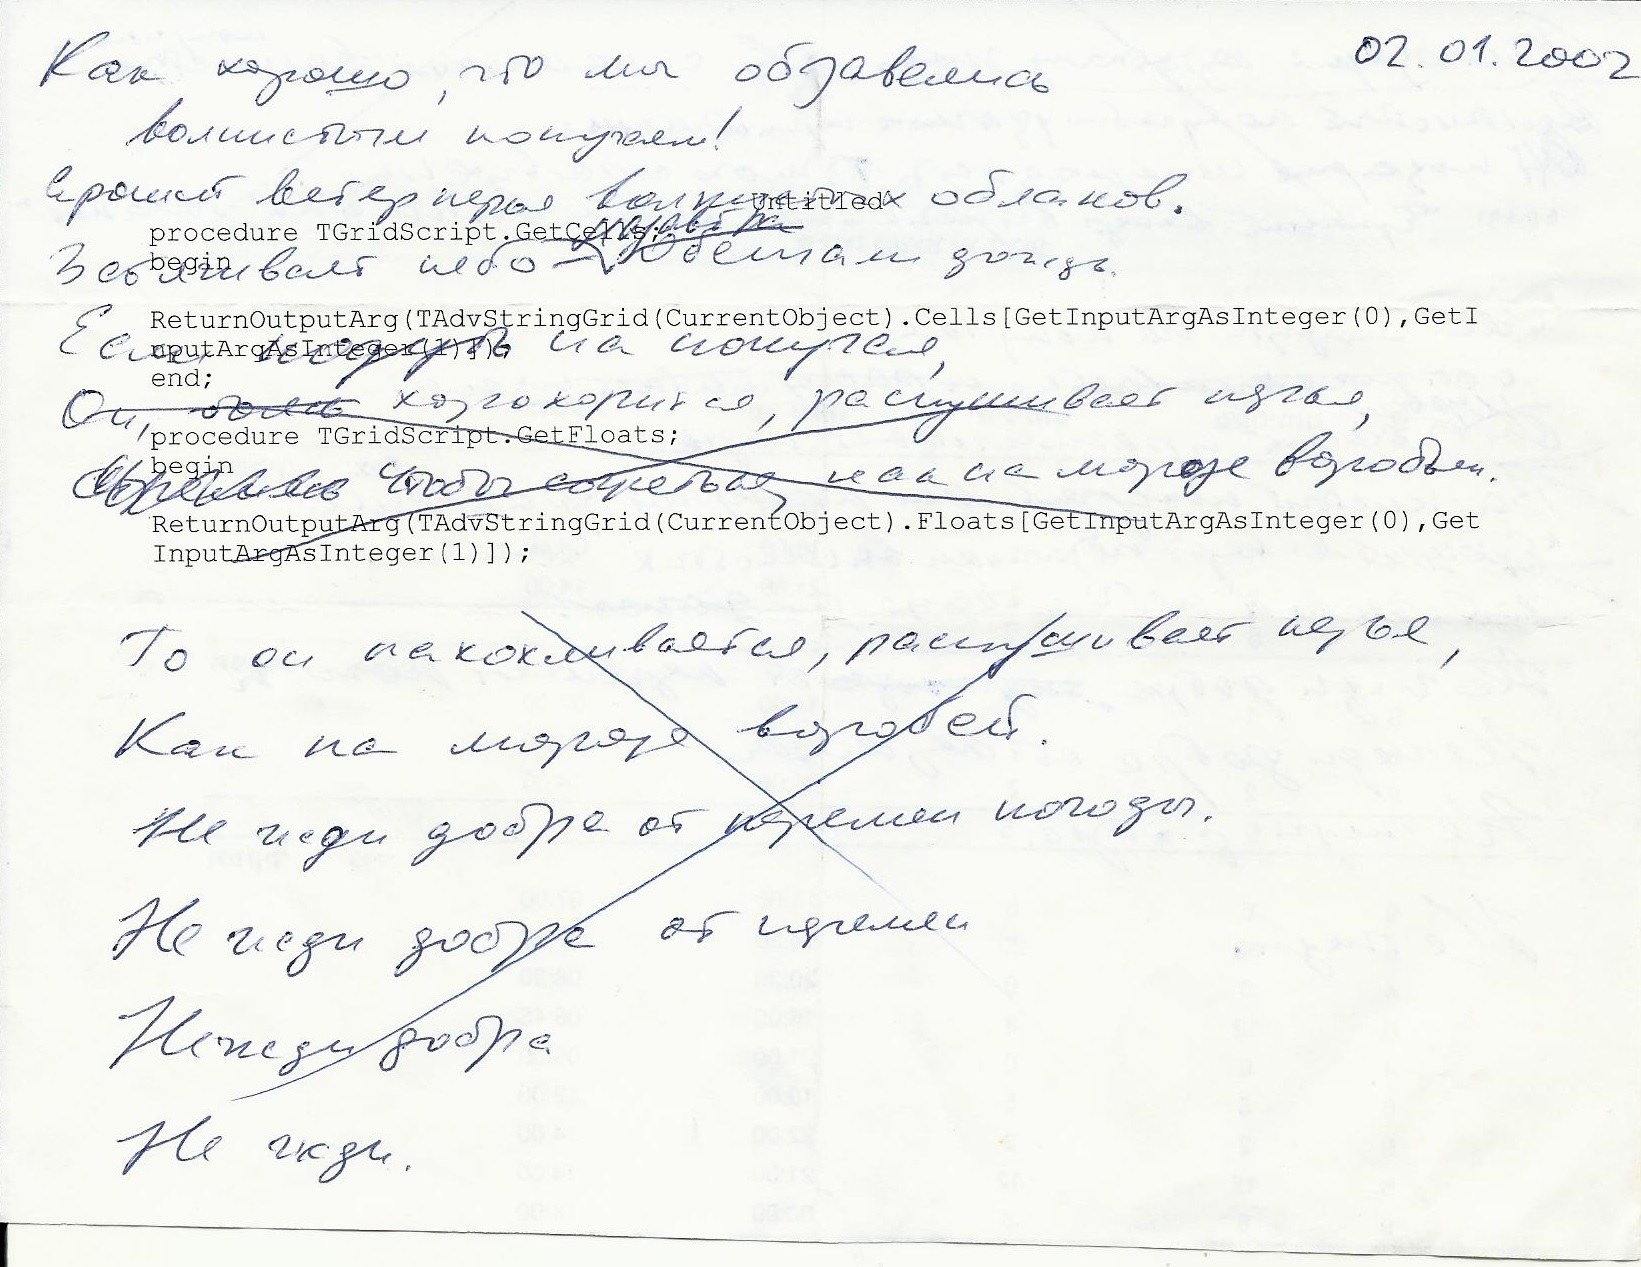 02.01.2002
Как хорошо, что мы обзавелись
волнистым попугаем!
Крошит ветер перья волнистых облаков.
Untitled
procedure TGridScript.GetCells;
Затягивает небо обещаем дождь.
begin
ReturnOutputArg(TAdvStringGrid(CurrentObject).Cells[GetInputArgAsInteger(0),GetI
nputArgAsInteger(1)]);
Если на попугая,
end;
Он, хохорится, распушивает перья,
procedure TGridScript.GetFloats;
begin
чтобы согреться, как на морозе воробьи.
ReturnOutputArg(TAdvStringGrid(CurrentObject).Floats[GetInputArgAsInteger(0),Get
InputArgAsInteger(1)]);
То он нахохливается, распушивает перья,
Как на морозе воробей.
Не жди добра от перемен погоды.
Не жди добра от перемен
Не жди добра
Не жди.